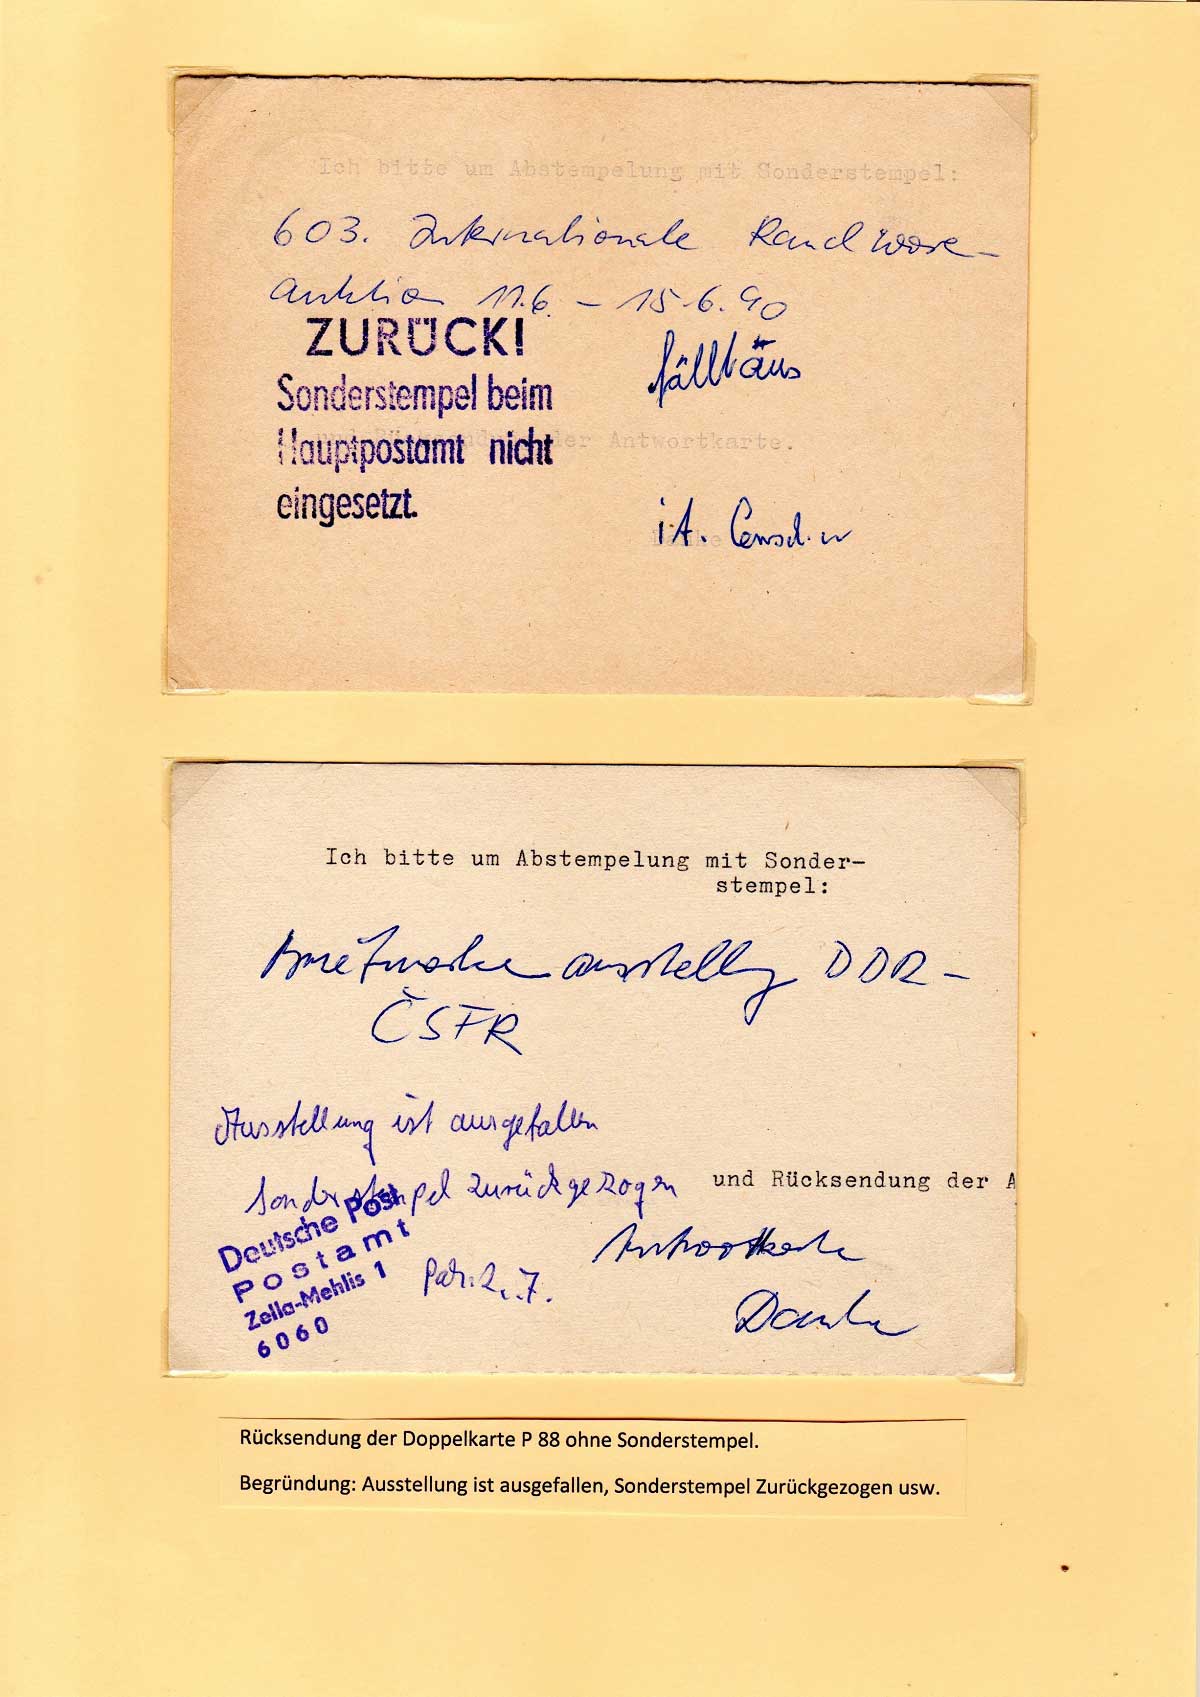 Ich bitte um Abstempelung mit Sonderstempel:
603. Internationale Rauchware-
Auktion 11.6. – 15.6.90
ZURÜCK!
fällt aus
Sonderstempel beim
und Rücksendung der Antwortkarte.
Hauptpostamt nicht
eingesetzt.
i.A.
Ich bitte um Abstempelung mit Sonder-
stempel:
Briefmarkenausstellung DDR-
ČSFR
Ausstellung ist ausgefallen
Sonderstempel zurückgezogen
und Rücksendung der A
Antwortkarte
Danke
Deutsche Post
Postamt
Zella-Mehlis 1
6060
Rücksendung der Doppelkarte P 88 ohne Sonderstempel.
Begründung: Ausstellung ist ausgefallen, Sonderstempel Zurückgezogen usw.